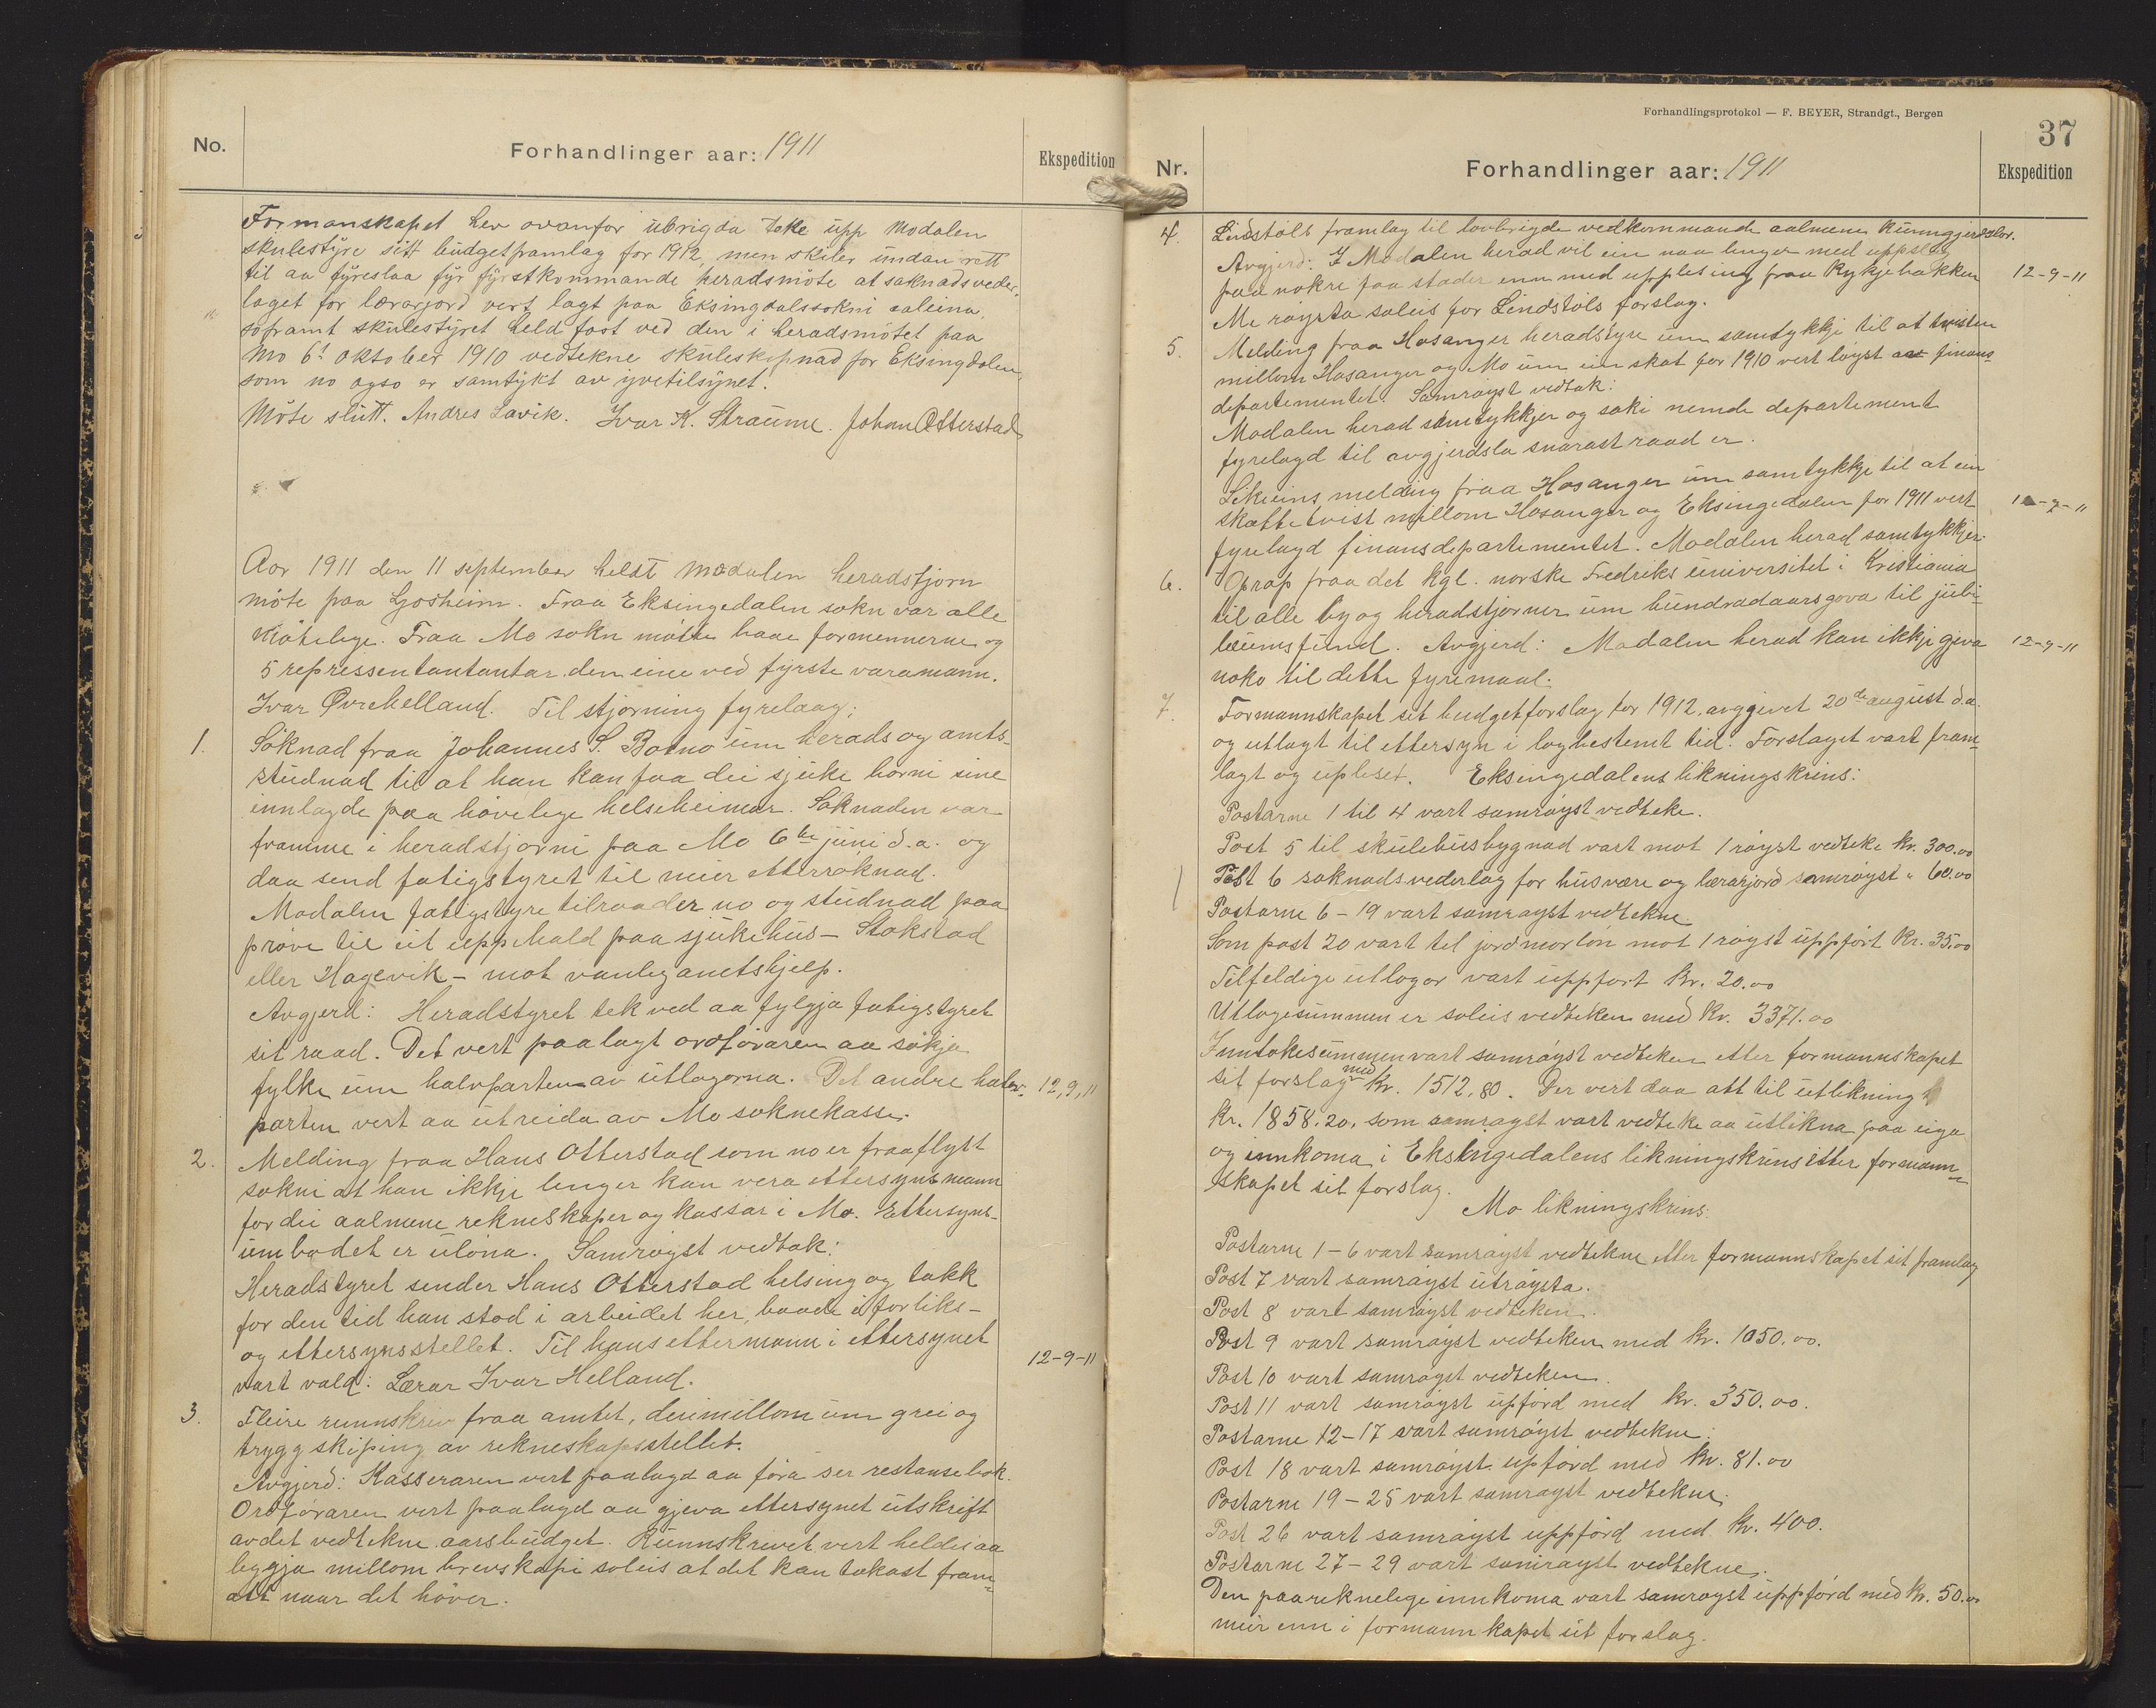 No.
Forhandlinger aar: 1911
Ekspedition
Formanskapet hev ovanfor ubrigda teke upp Modalen
skulestyre sitt budgetframlag for 1912, men skiler undan rett
til aa fyreslaa fyr fyrstkommande heradsmöte at saknadsveder-
laget for lærarjord vert lagt paa Eksingdalssokni aaleina,
soframt skulestyret held fast ved den i heradsmötet paa
Mo 6t oktober 1910 vedtekne skuleskipnad for Eksingdalen,
som no ogso er samtykt av yvetilsynet.
Möte slutt. Andres Lavik. Ivar K. Straume. Johan Otterstad
Aar 1911 den 11 september heldt Modalen heradstjorn
möte paa Ljosheim. Fraa Eksingedalen sokn var alle
mötelege. Fraa Mo sokn mötte baae formennerne og
5 repressentantantar, den eine ved fyrste varamann.
Ivar Øvrehelland. Til stjorning fyrelaag:
1. Söknad fraa Johannes S. Botno um herads og amts-
studnad til at han kan faa dei sjuke borni sine
innlagde paa hövelege helseheimar. Söknaden var
framme i heradstjorni paa Mo 6te juni d.a. og
daa send fatigstyret til meir etterröknad.
Modalen fatigstyre tilraader no og studnad paa
pröve til eit upphald paa sjukehus - Stokstad
eller Hagevik - mot vanleg amtshjelp.
Avgjerd: Heradstyret tek ved aa fylgja fatigstyret
sit raad. Det vert paalagt ordföraren aa sökja
fylke um halvparten av utlogorna. Det andre halv- 12,9,11
parten vert aa utreida av Mo soknekasse.
2. Melding fraa Hans Otterstad som no er fraaflytt
sokni at han ikkje lenger kan vera ettersynsmann
for dei aalmene rekneskaper og kassar i Mo. Ettersyns-
umbodet er ulöna. Samröyst vedtak:
Heradstyret sender Hans Otterstad helsing og takk
for den tid han stod i arbeidet her, baade i forliks-
og ettersynsstellet. Til hans ettermann i ettersynet
vart vald: Lærar Ivar Helland. 12-9-11
3. Fleire runnskriv fraa amtet, derimillom um grei og
trygg skiping av rekneskapsstellet.
Avgjerd: Kasseraren vert paalagd aa föra ser restansebok.
Ordföraren vert paalagd aa gjeva ettersynet utskrift
av det vedtekne aarsbudget. Runnskrivet vert heldei aa
leggja millom brevskapi soleis at det kan takast fram-
att naar det höver.
Forhandlingsprotokol — F. BEYER, Strandgt., Bergen
37
Nr.
Forhandlinger aar: 1911
Ekspedition
4. Lindstöls framlag til lovbrigde vedkommande aalmenn kunngjerdslov.
Avgjerd: I Modalen herad vil ein naa lenger med uppslag
paa nokre faa stader enn med upplesing fraa kyrkjebakken 12-9-11
Me röysta soleis for Lindstöls forslag.
5. Melding fraa Hosanger heradstyre um samtykkje til at tvisten
millom Hosanger og Mo um ein skat for 1910 vert löyst av finans-
departementet. Samröyst vedtak:
Modalen herad samtykkjer og saki nemde departement
fyrelagd til avgjerdsla snarast raad er.
Likeeins melding fraa Hosanger um samtykkje til at ein
skattetvist millom Hosanger og Eksingedalen for 1911 vert
fyrelagd finansdepartementet. Modalen herad samtykkjer.
6. Oprop fraa det kgl. norske Fredriks universitet i Kristiania
til alle by og heradstjorner um hundradaarsgova til jubi-
læumsfund. Avgjerd: Modalen herad kan ikkje gjeva 12-9-11
noko til dette fyremaal.
7. Formannskapet sit budgetforslag for 1912, avggivet 20de august d.a.
og utlagt til ettersyn i lovbestemt tid. Forslaget vart fram-
lagt og upleset. Eksingedalens likningskrins:
Postarne 1 til 4 vart samröyst vedteke.
Post 5 til skulehusbygnad vart mot 1 röyst vedteke kr. 300.00
Post 6 saknadsvederlag for husvære og lærarjord samröyst " 60.00
Postarne 6 - 19 vart samröyst vedtekne
Som post 20 vart til jordmorlön mot 1 röyst uppfört Kr. 35.00
Tilfeldige utlogor vart uppfort Kr. 20.00
Utlogesummen er soleis vedteken med Kr. 3371.00
Inntokesummen vart samröyst vedteken etter formannskapet
sit forslag med Kr. 1512.80. Der vert daa att til utlikning
Kr. 1858.20, som samröyst vart vedteke aa utlikna paa eiga
og innkoma i Eksingedalens likningskrins etter formann-
skapet sit forslag.
Mo likningskrins:
Postarne 1-6 vart samröyst vedtekne etter formannskapet sit framlag
Post 7 vart samröyst utröysta.
Post 8 vart samröyst vedteken.
Post 9 vart samröyst vedteken med kr. 1050.00.
Post 10 vart samröyst vedteken.
Post 11 vart samröyst upförd med kr. 350.00.
Postarne 12-17 vart samröyst vedtekne.
Post 18 vart samröyst upförd med kr. 81.00
Postarne 19-25 vart samröyst vedtekne.
Post 26 vart samröyst uppförd med Kr. 400.
Postarne 27-29 vart samröyst vedtekne.
Den paareknelege innkoma vart samröyst uppförd med kr. 50.00
meir enn i formannskapet sit forslag.